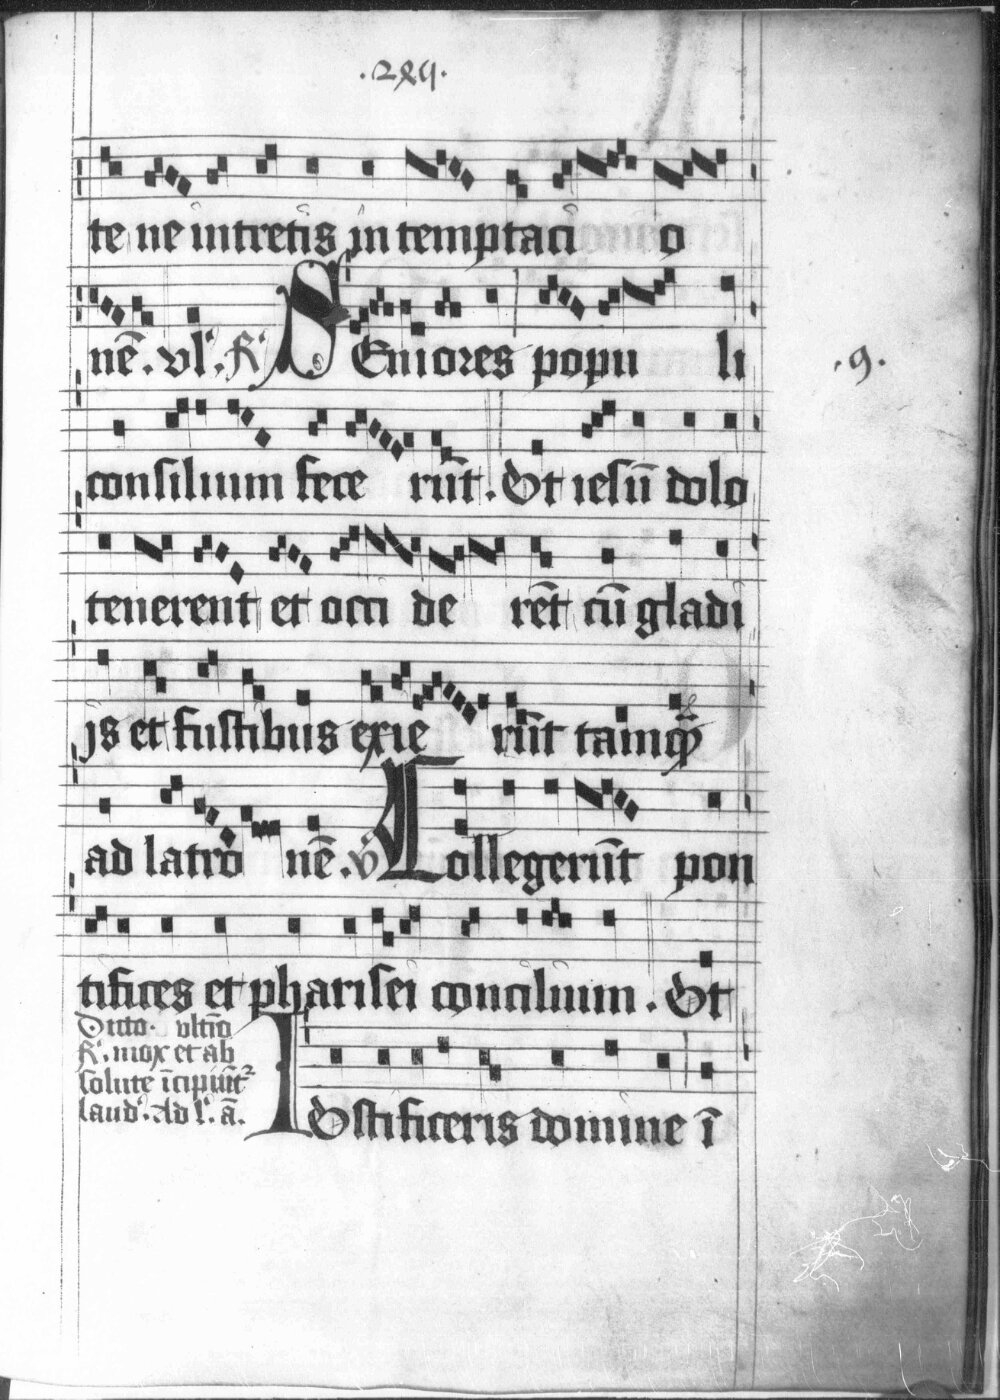 .289.
te ne intretis in temptaci o
nē. vl'. R' SEniores popu li
.9.
consilium fece rūt. Et iesū dolo
tenerent et occi de rēt cū gladi
js et fustibus exie rūt tamq̄
ad latro nē. v̄ Collegerūt pon
tifices et pharisei concilium. Et
Dicto. vltīo
R'. mox et ab
solute īcipiūt
laud'. Ad l'. ā.
IUstificeris domine ī